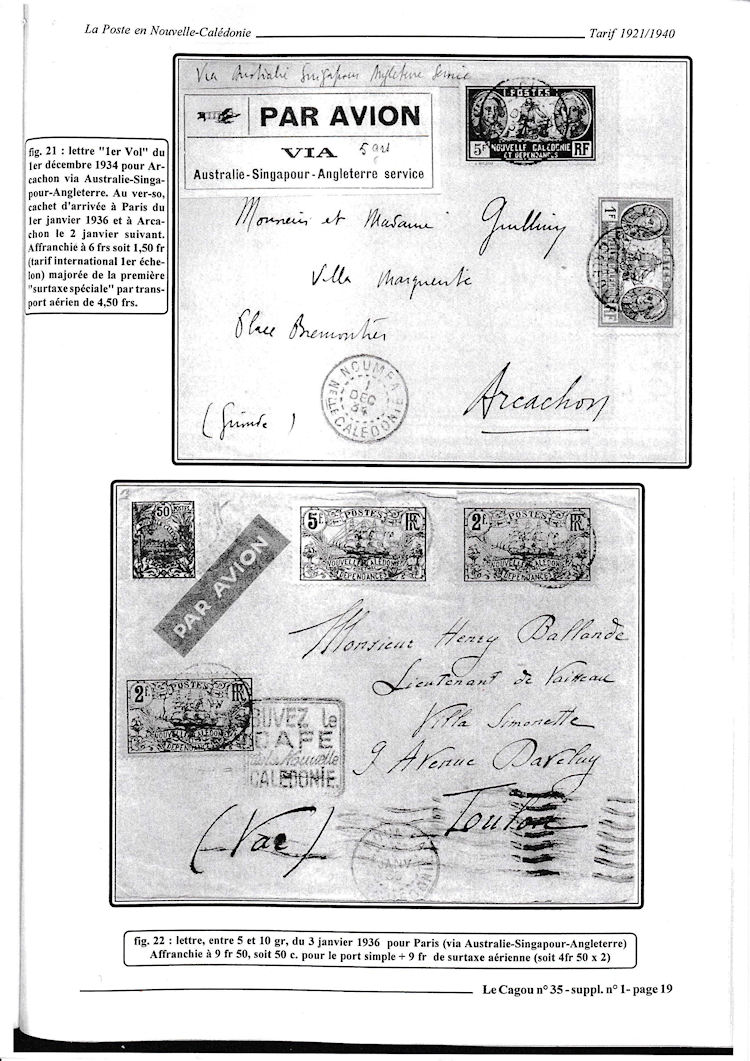 La Poste en Nouvelle-Calédonie
Tarif 1921/1940
fig. 21 : lettre "1er Vol" du
1er décembre 1934 pour Ar-
cachon via Australie-Singa-
pour-Angleterre. Au ver-so,
cachet d'arrivée à Paris du
1er janvier 1936 et à Arca-
chon le 2 janvier suivant.
Affranchie à 6 frs soit 1,50 fr
(tarif international 1er éche-
lon) majorée de la première
"surtaxe spéciale" par trans-
port aérien de 4,50 frs.
Via Australie Singapour Angleterre Service
PAR AVION
VIA 5 grs
Australie-Singapour-Angleterre service
POSTES
5F NOUVELLE CALÉDONIE RF
ET DÉPENDANCES
1F
RF
Monsieur et Madame
Villa Marguerite
Place Bremontier
Arcachon
(Gironde)
NOUMEA
1
DEC
34
NELLE CALEDONIE
50
PAR AVION
5F POSTES RF
NOUVELLE CALÉDONIE
DÉPENDANCES
2F POSTES RF
NOUVELLE CALÉDONIE
DÉPENDANCES
Monsieur Henry Ballande
Lieutenant de Vaisseau
Villa Simonette
9 Avenue Daveluy
Toulon
(Var)
2F POSTES RF
NOUVELLE CALÉDONIE
DÉPENDANCES
BUVEZ le
CAFE
de la Nouvelle
CALÉDONIE.
JANV
fig. 22 : lettre, entre 5 et 10 gr, du 3 janvier 1936 pour Paris (via Australie-Singapour-Angleterre)
Affranchie à 9 fr 50, soit 50 c. pour le port simple + 9 fr de surtaxe aérienne (soit 4fr 50 x 2)
Le Cagou n° 35 - suppl. n° 1- page 19